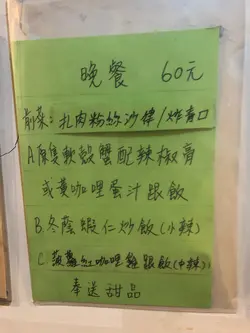 晚餐 60元
前菜:扎肉粉絲沙律/炸青口
A.原隻軟殼蟹配辣椒膏
或黃咖哩蛋汁跟飯
B.冬蔭蝦仁炒飯(小辣)
C.菠蘿紅咖哩雞跟飯(中辣)
奉送甜品